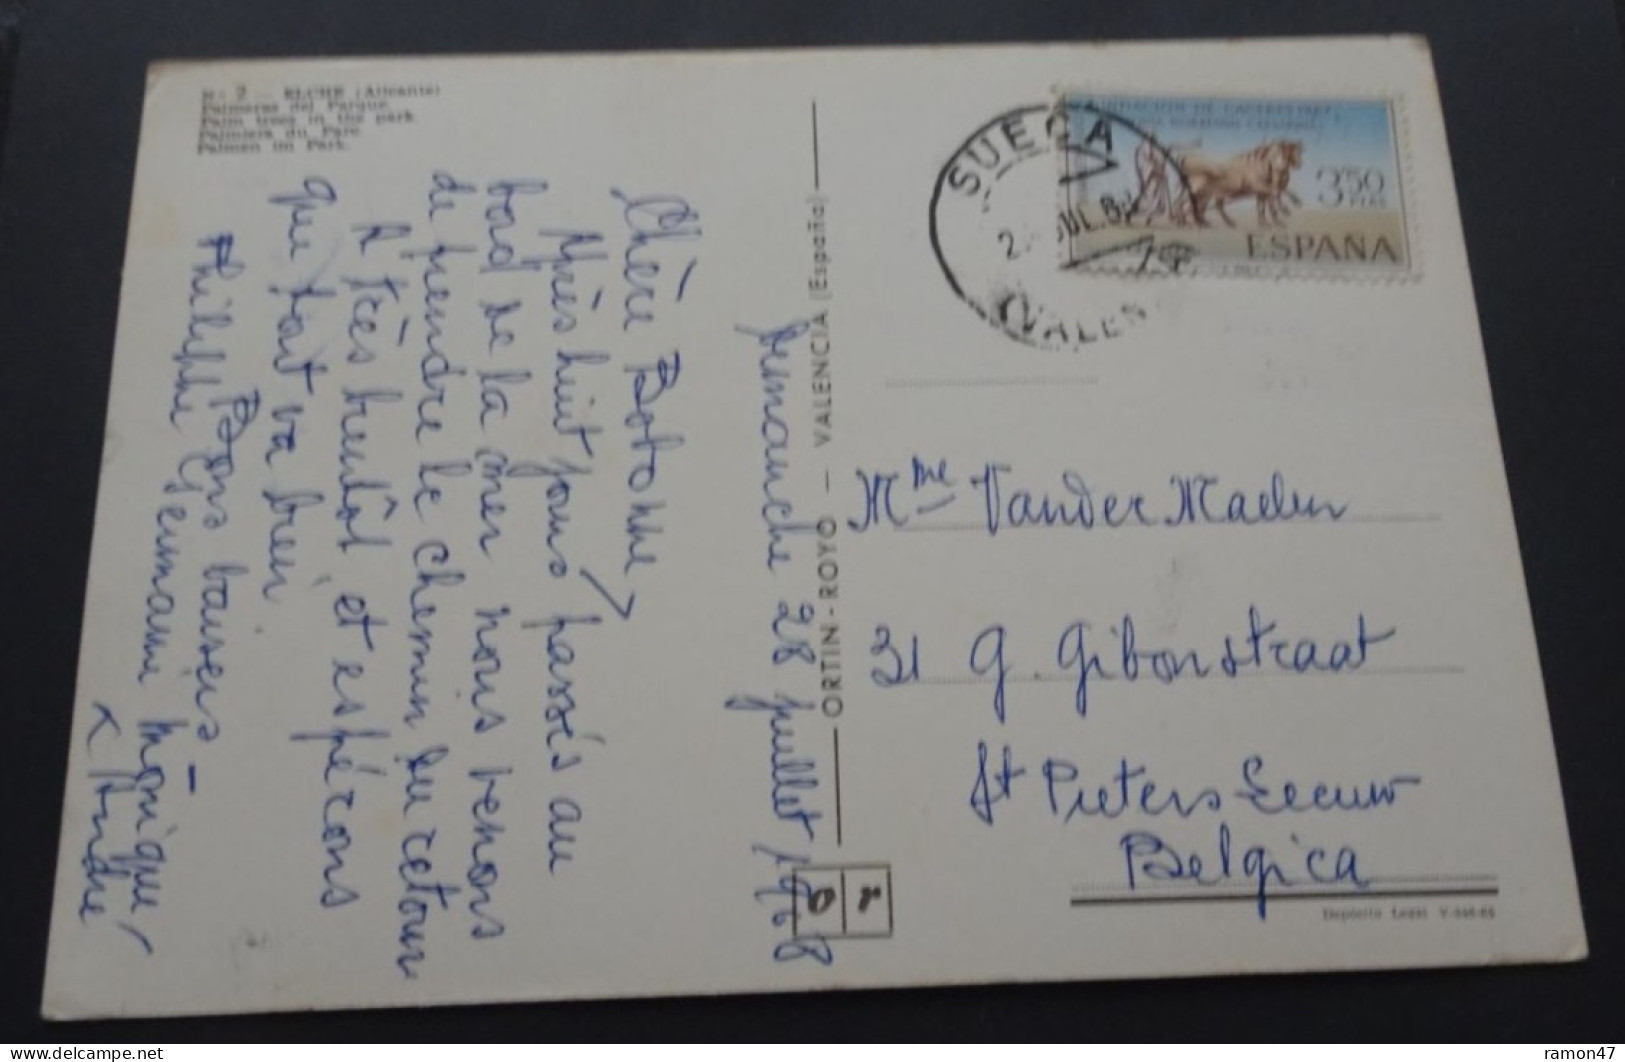 N.º 2 — ELCHE (Alicante)
Palmeras del Parque.
Palm trees in the park.
Palmiers du Parc.
Palmen im Park.
Dimanche 28 juillet 1968
Chère Bobonne,
Après huit jours passés au
bord de la mer nous venons
de prendre le chemin du retour
A très bientôt et espérons
que tout va bien
Bons baisers –
Philippe Germaine Monique,
André
ORTIN-ROYO — VALENCIA (España)
or
SUECA
2 JUL. 68
(VALEN
3'50
PTAS
ESPAÑA
Mme Vander Maelen
31 G. Gibonstraat
St Pieters Leeuw
Belgica
Depósito Legal V-
delcampe.net
ramon47